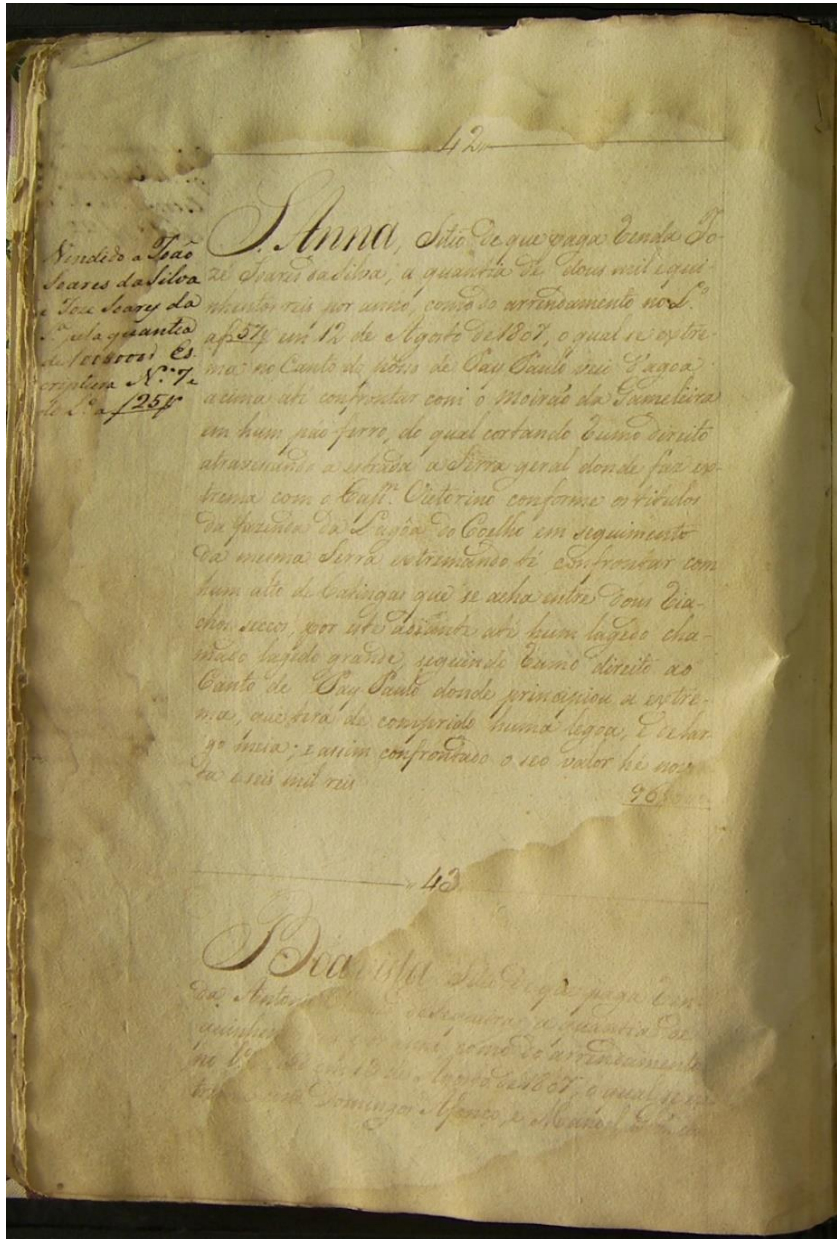 42
Vendido a João
Soares da Silva
e Joze Soares da
S.ª pela quantia
de 100$000 Es-
criptura N.º 7 e
do L.º a f 25 v
S. Anna, Sitio de que paga Renda Jo-
zé Soares da Silva, a quantia de dous mil e qui-
nhentos reis por anno, como do arrendamento no L.º
a f 57 em 12 de Agosto de 1807, o qual se extre-
ma no Canto do Pay Paulo Lagoa
acima até confrontar com o Moirão da Gameleira
em hum páo ferro, do qual cortando Rumo direito
atravessando a estrada a Serra geral donde faz ex-
trema com o Cap.m Victorino conforme os titulos
da fazenda da Lagôa do Coelho em seguimento
da mesma Serra extremando té confrontar com
hum alto de Catingas que se acha entre dous Ria-
chos seccos, por este adiante até hum lagêdo cha-
mado lagêdo grande, seguindo Rumo direito ao
Canto de Pay Paulo donde principiou a extre-
ma, que terá de comprido huma legoa, e de lar-
go meia; e assim confrontado o seo valor hé noven-
ta e seis mil reis 96$000
43
Boa vista Sitio de que paga Ren-
da Antonio de Siqueira, a quantia de
quinhen por anno, como do arrendamento
no L.º em de Agosto de 1807, o qual se ex-
tre Domingos Afonço, e Manoel